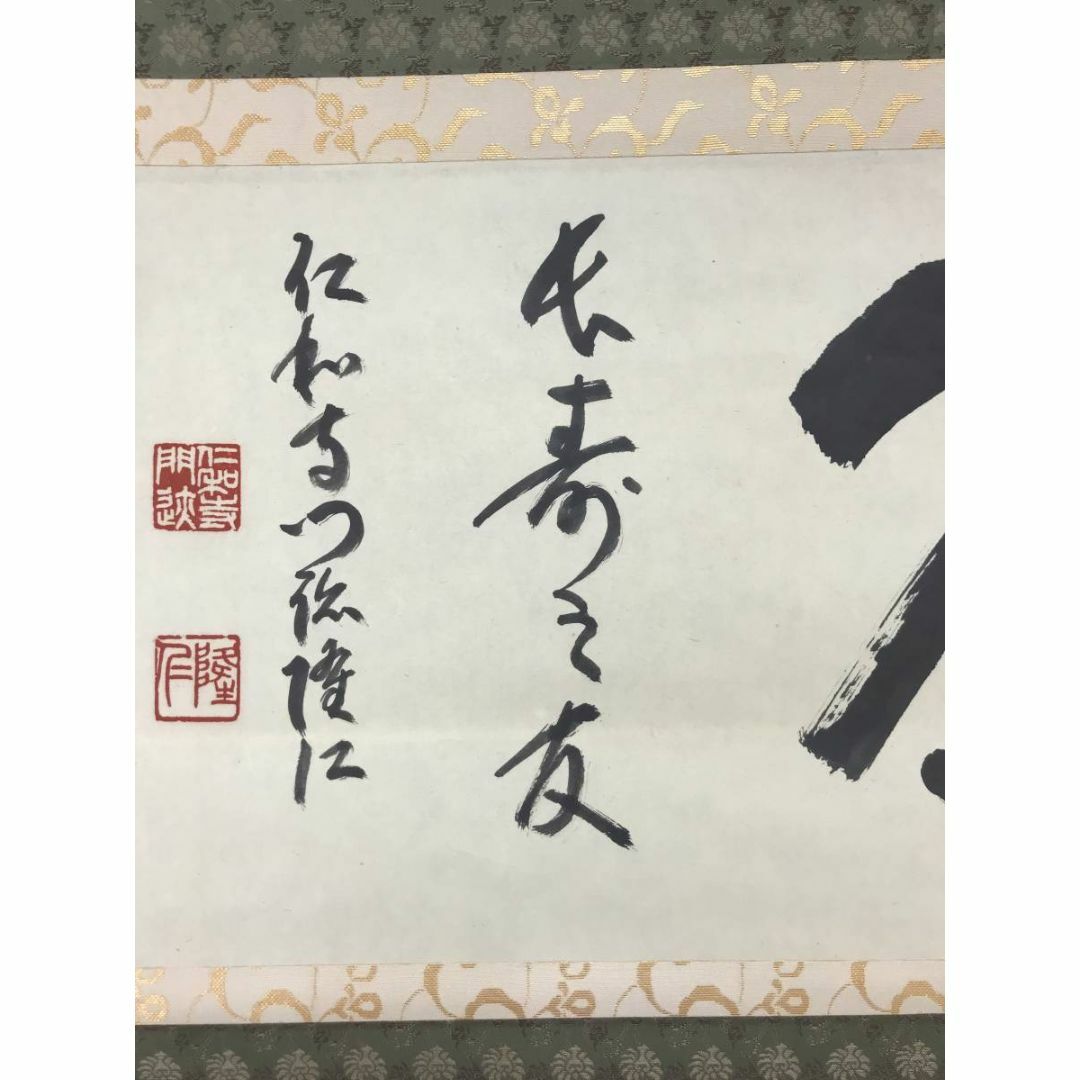 長寿之友
仁和寺門跡隆仁
仁和寺
門迹
隆仁